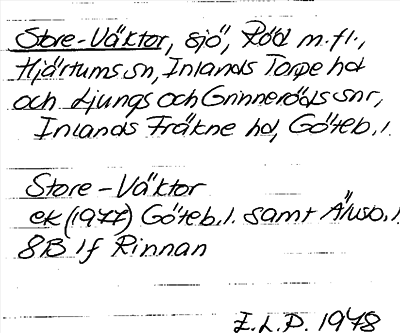 Store-Väktor, sjö, Röd m.fl.,
Hjärtums sn, Inlands Torpe hd
och Ljungs och Grinneröds snr,
Inlands Fräkne hd, Göteb. l.
Store-Väktor
ek (1977) Göteb. l. samt Älvsb. l.
8B 1f Rinnan
E.L.P. 1978